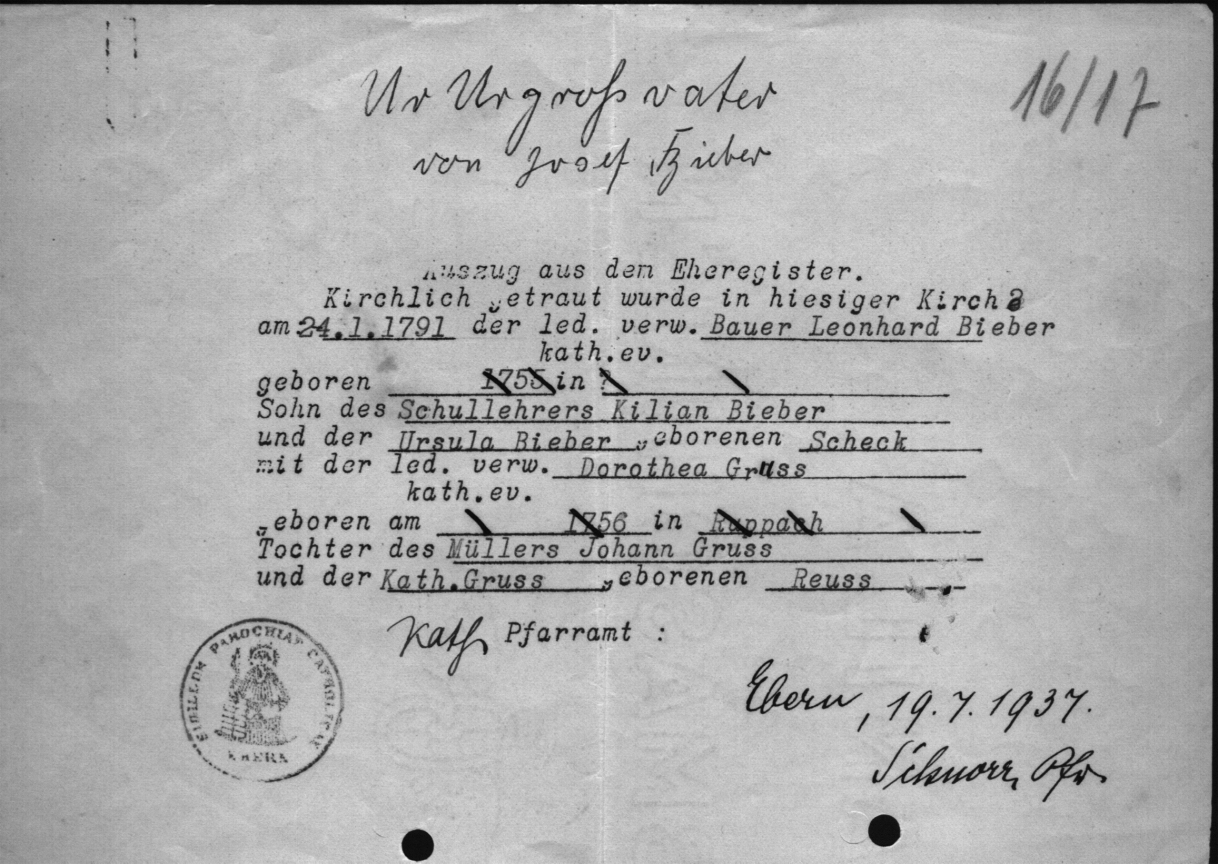 16/17
Ur Urgroßvater
von Josef Bieber
Auszug aus dem Eheregister.
Kirchlich getraut wurde in hiesiger Kirche
am 24.1.1791 der led. verw. Bauer Leonhard Bieber
kath.ev.
geboren 1755 in ?
Sohn des Schullehrers Kilian Bieber
und der Ursula Bieber geborenen Scheck
mit der led. verw. Dorothea Gruss
kath.ev.
geboren am 1756 in Ruppach
Tochter des Müllers Johann Gruss
und der Kath.Gruss geborenen Reuss
Kath Pfarramt :
SIGILLUM PAROCHIAE CATHOLICAE
EBERN
Ebern, 19.7.1937.
Schnorr, Pfr.